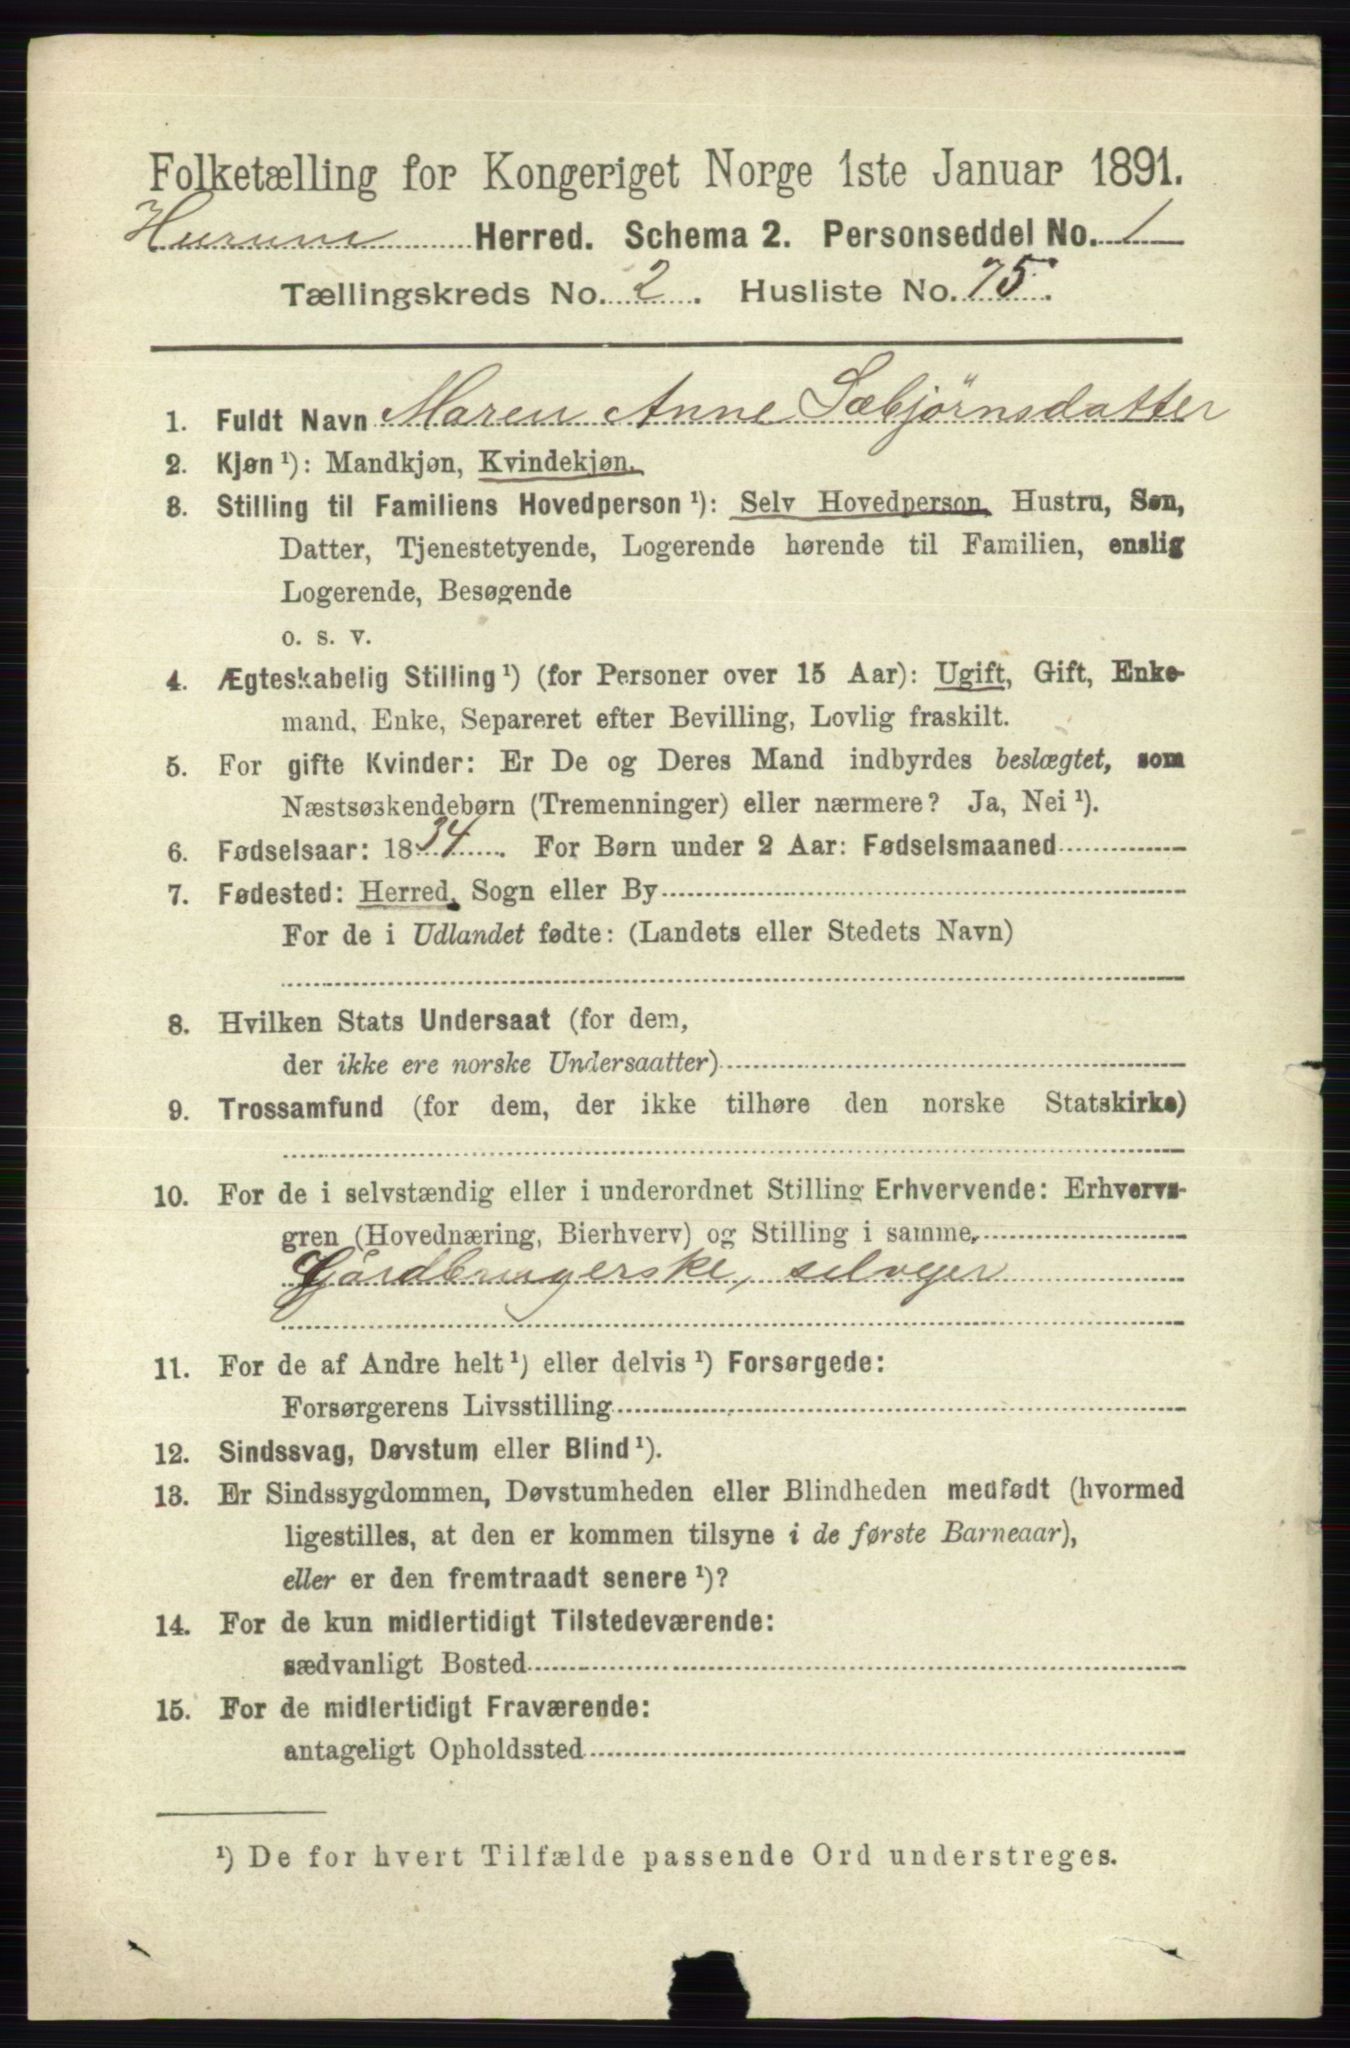 Folketælling for Kongeriget Norge 1ste Januar 1891.
Hurum Herred. Schema 2. Personseddel No. 1
Tællingskreds No. 2. Husliste No. 75.
1. Fuldt Navn Maren Anne Sæbjörnsdatter
2. Kjøn ¹): Mandkjøn, Kvindekjøn.
3. Stilling til Familiens Hovedperson ¹): Selv Hovedperson, Hustru, Søn,
Datter, Tjenestetyende, Logerende hørende til Familien, enslig
Logerende, Besøgende
o. s. v.
4. Ægteskabelig Stilling ¹) (for Personer over 15 Aar): Ugift, Gift, Enke-
mand, Enke, Separeret efter Bevilling, Lovlig fraskilt.
5. For gifte Kvinder: Er De og Deres Mand indbyrdes beslægtet, som
Næstsøskendebørn (Tremenninger) eller nærmere? Ja, Nei ¹).
6. Fødselsaar: 1834. For Børn under 2 Aar: Fødselsmaaned
7. Fødested: Herred, Sogn eller By
For de i Udlandet fødte: (Landets eller Stedets Navn)
8. Hvilken Stats Undersaat (for dem,
der ikke ere norske Undersaatter)
9. Trossamfund (for dem, der ikke tilhøre den norske Statskirke)
10. For de i selvstændig eller i underordnet Stilling Erhvervende: Erhvervs-
gren (Hovednæring, Bierhverv) og Stilling i samme.
Gårdbrugerske, selvejer
11. For de af Andre helt ¹) eller delvis ¹) Forsørgede:
Forsørgerens Livsstilling
12. Sindssvag, Døvstum eller Blind ¹).
13. Er Sindssygdommen, Døvstumheden eller Blindheden medfødt (hvormed
ligestilles, at den er kommen tilsyne i de første Barneaar),
eller er den fremtraadt senere ¹)?
14. For de kun midlertidigt Tilstedeværende:
sædvanligt Bosted
15. For de midlertidigt Fraværende:
antageligt Opholdssted
¹) De for hvert Tilfælde passende Ord understreges.